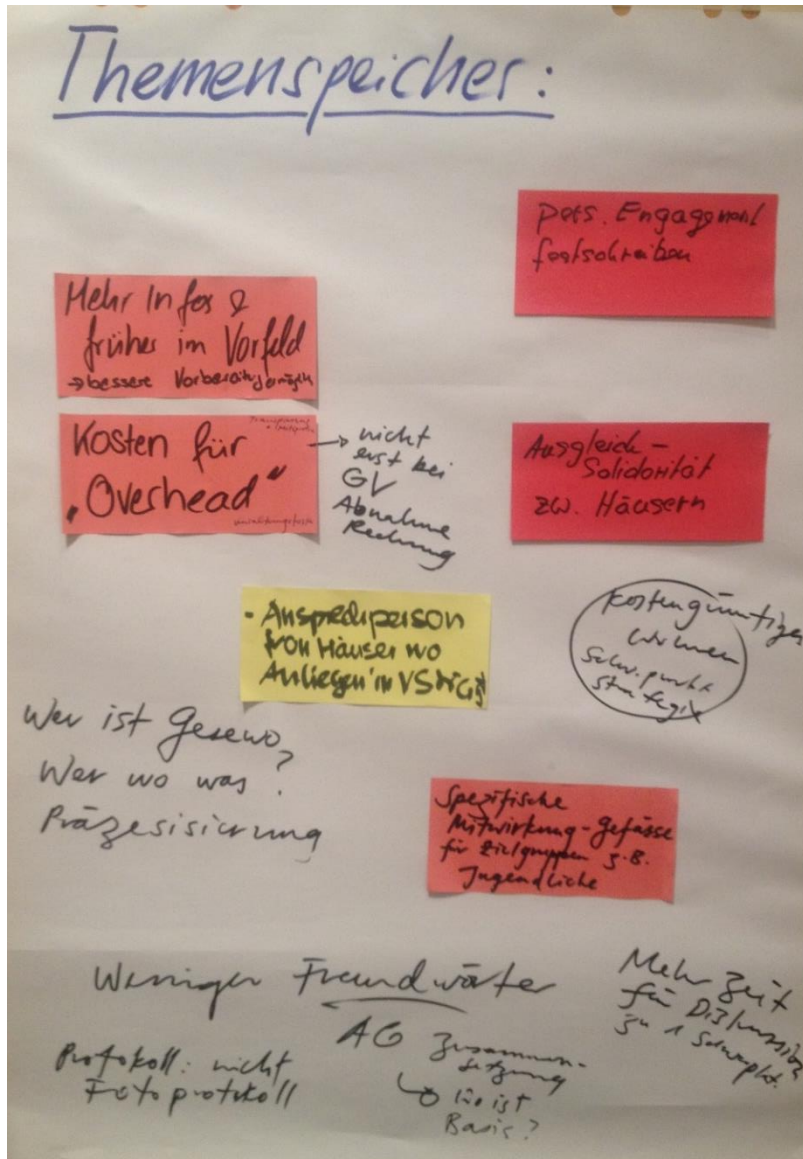 Themenspeicher:
pers. Engagement
festschreiben
Mehr Infos &
früher im Vorfeld
→ bessere Vorbereitung
Kosten für
„Overhead"
→ nicht
erst bei
GV
Abnahme
Rechnung
Ausgleich -
Solidarität
zw. Häusern
- Ansprechperson
von Häuser wo
Anliegen in
Kostengünstiges
wohnen
Schw.punkt
Strategie
Wer ist Gesewo?
Wer wo was?
Präzesisierung
Spezifische
Mitwirkung-Gefässe
für Zielgruppen z.B.
Jugendliche
Weniger Fremdwörter
Mehr Zeit
für Diskussion
zu 1 Schwerpkt.
AG Zusammen-
setzung
wo ist
Basis?
Protokoll: nicht
Fotoprotokoll